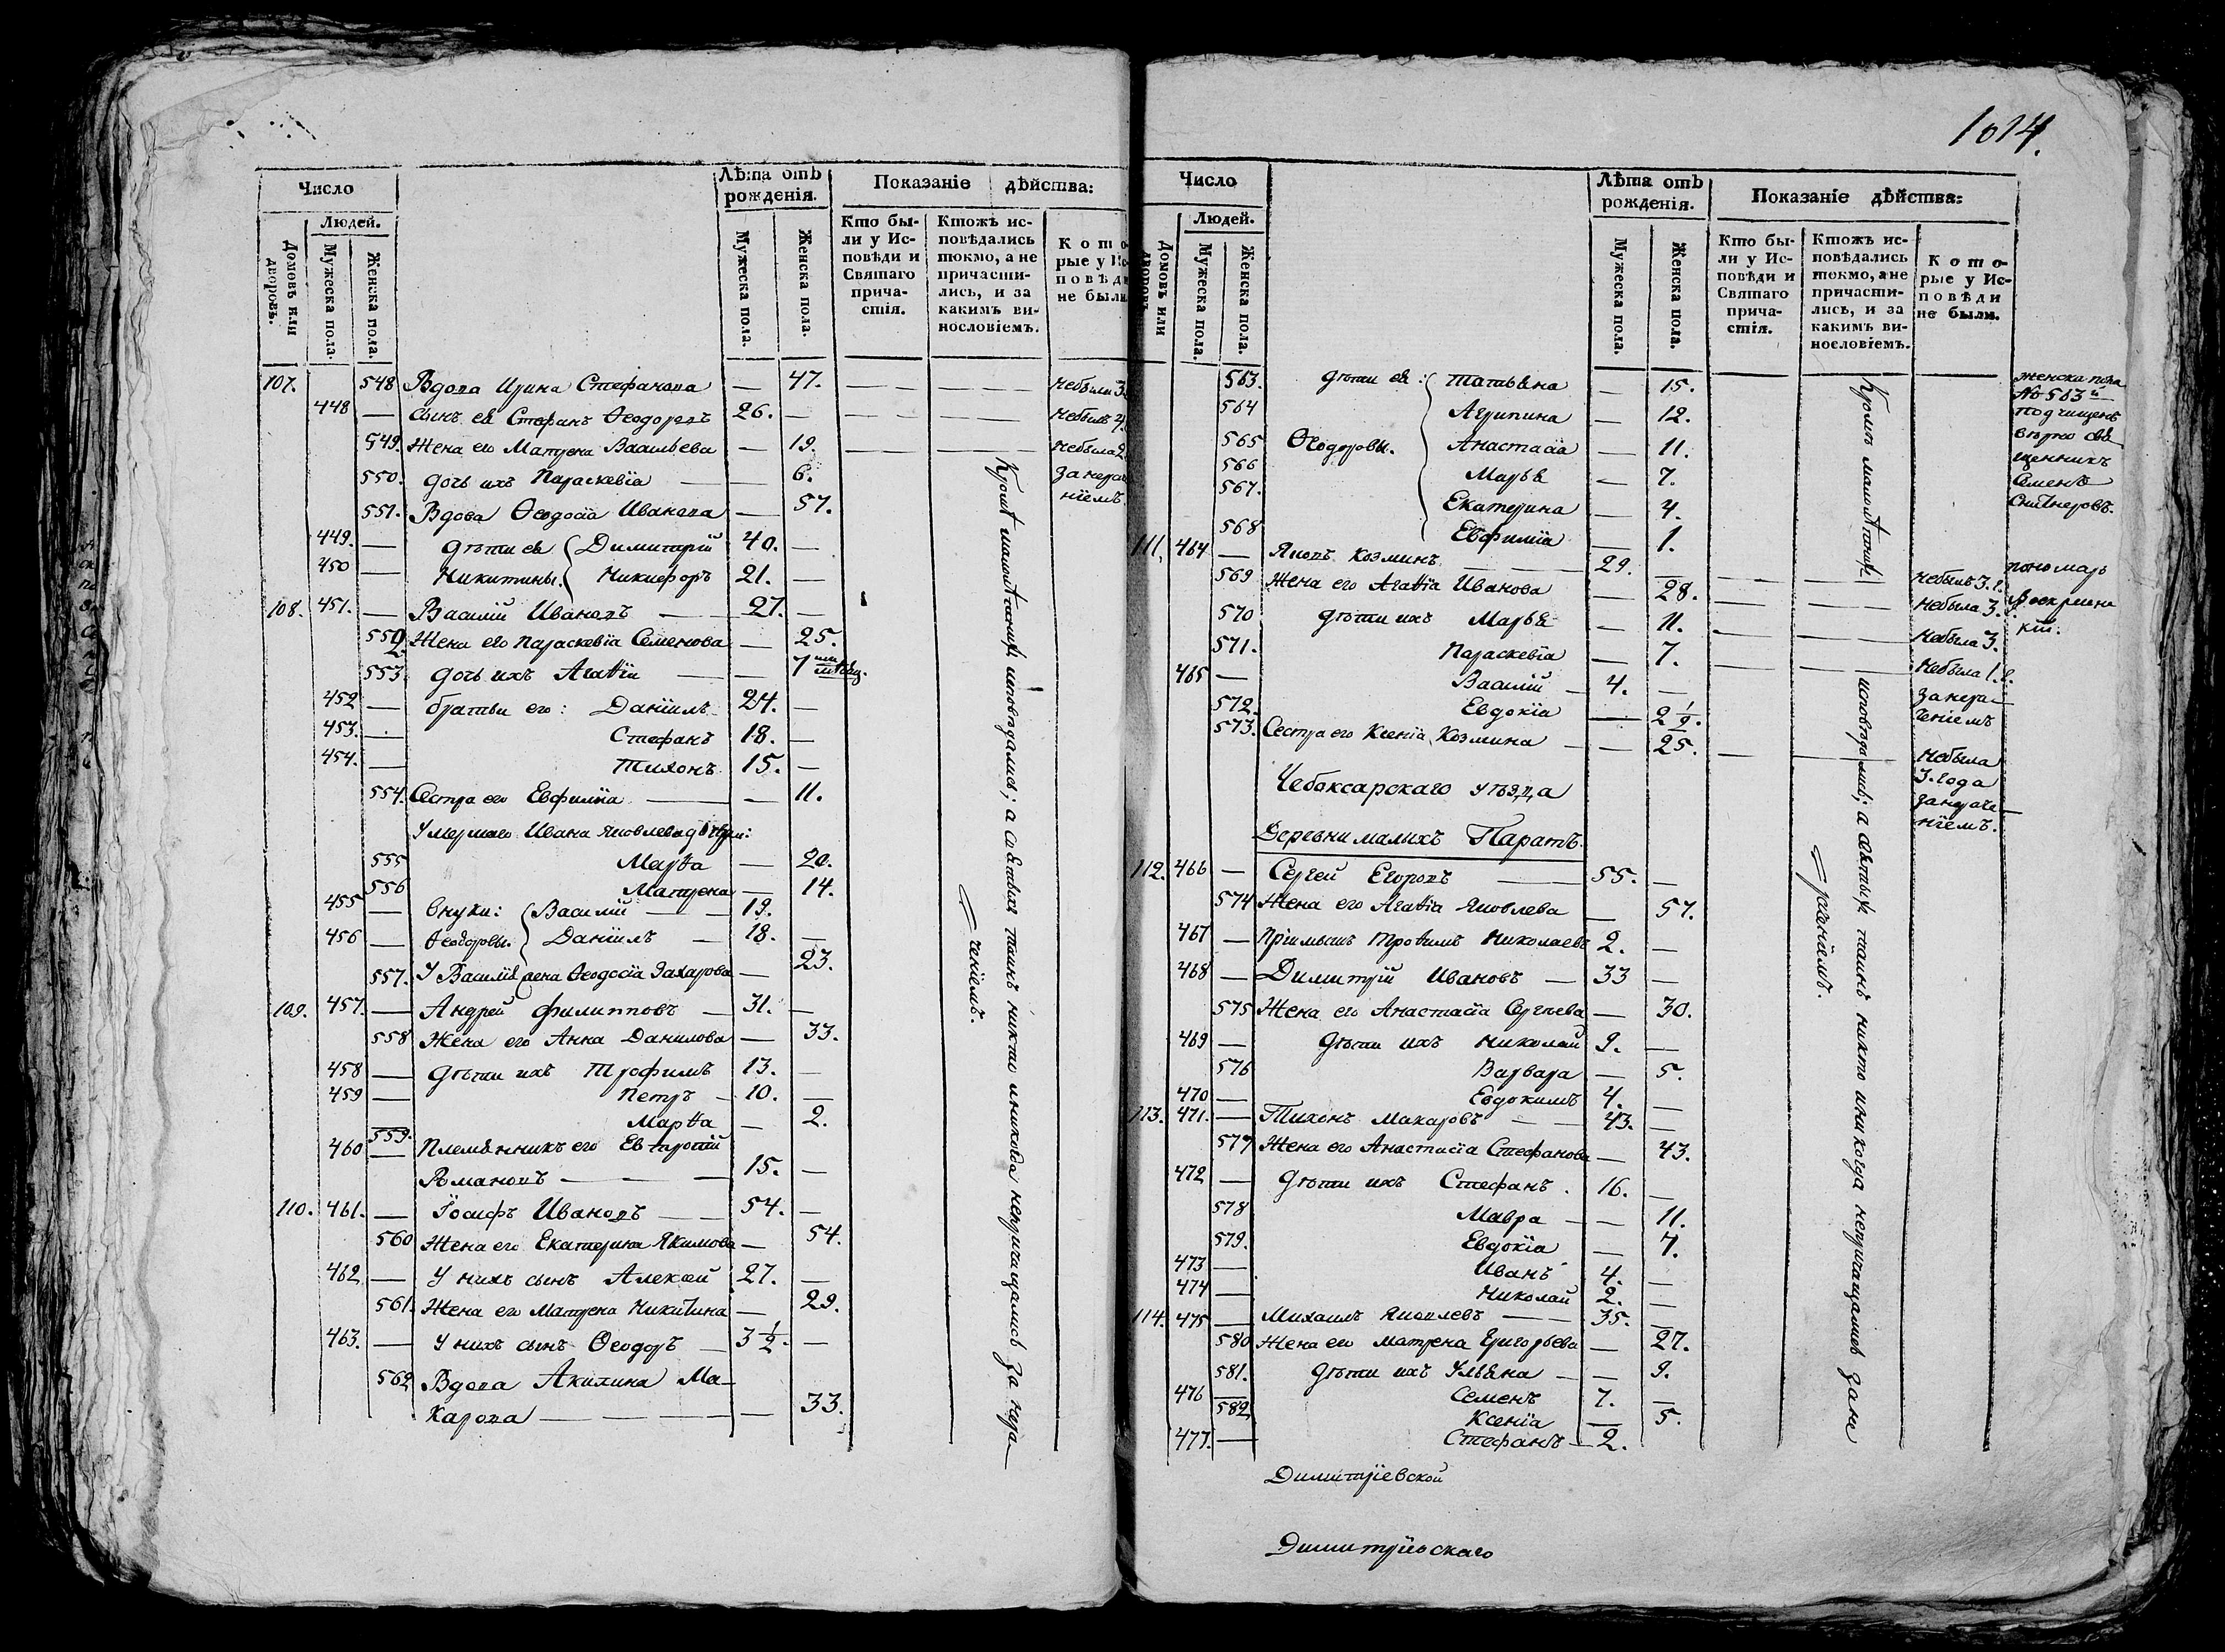 Число
Людей.
Домовъ или дворовъ.
Мужеска пола.
Женска пола.
Лѣта отъ рожденія.
Мужеска пола.
Женска пола.
Показаніе дѣйства:
Кто бы-
ли у Ис-
повѣди и
Святаго
прича-
стія.
Ктожъ ис-
повѣдались
токмо, а не
причасти-
лись, и за
какимъ ви-
нословіемъ.
Кото
рые у Ис
повѣди
не были
107. 548 Вдова Ирина Стефанова — 47. — — — — небыла 3
448 — сынъ ея Стефанъ Ѳеодоровъ 26. — — — — небылъ 4.
549. Жена его Матрена Васильева — 19. — — — небыла 2.
550. дочь ихъ Параскевіа — — 6. занера
551. Вдова Ѳеодосіа Иванова — 57. ніемъ.
449. — дѣти ея Димитрій 40. —
450 — Никитины. Никифоръ 21. —
108. 451. — Василій Ивановъ — 27. —
552 Жена его Параскевіа Семенова — 25.
553 дочь ихъ Агаѳіа — — 7
452 — братьи его: Даніилъ 24. —
453. — Стефанъ 18. —
454. — Тихонъ 15. —
554. Сестра его Евфиміа — — 11.
Умершаго Ивана Яковлева дочери:
555 Марѳа — 20.
556 Матрена — 14.
455 — внуки: Василій — — 19.
456 — Ѳеодоровы. Даніилъ — 18. —
557. У Василія жена Ѳеодосіа Захарова — 23.
109. 457. — Андрей Филипповъ — 31. —
558 Жена его Анна Данилова — 33.
458 — дѣти ихъ Трофимъ 13. —
459 — Петръ — 10. —
559. Марѳа — 2.
460 — Племянникъ его Евтропій
Романовъ — — — 15. —
110. 461. — Іосифъ Ивановъ — — 54. —
560 Жена его Екатерина Якимова — 54.
462 — У нихъ сынъ Алексѣй 27. —
561. Жена его Матрена Никитина — 29.
463. — У нихъ сынъ Ѳеодоръ — 3 1/2. —
562 Вдова Акилина Ма-
карова — — — — — 33.
Кромѣ малолѣтнихъ исповѣдались; а святыхъ таинъ никто и никогда непричащались за нера-
ченіемъ.
1014.
Число
Людей.
Домовъ или дворовъ.
Мужеска пола.
Женска пола.
Лѣта отъ рожденія.
Мужеска пола.
Женска пола.
Показаніе дѣйства:
Кто бы-
ли у Ис-
повѣди и
Святаго
прича-
стія.
Ктожъ ис-
повѣдались
токмо, а не
причасти-
лись, и за
какимъ ви-
нословіемъ.
Кото-
рые у Ис-
повѣди
не были.
563. дѣти ея: Татьяна — 15.
564 Агрипина — 12.
565 Ѳеодоровы. Анастасіа — 11.
566 Марья — 7.
567. Екатерина — 4.
568 Евфиміа — 1.
111. 464 — Яковъ Козминъ — — 29. — — — — небылъ 3. г.
569 Жена его Агаѳіа Иванова — 28. — — — Небыла 3.
570 дѣти ихъ Марья — 11. — — — Небыла 3.
571. Параскевіа — 7. — — — Небыла 1. г.
465 — Василій — 4. — занера-
572. Евдокіа — 2 1/2. ченіемъ
573. Сестра его Ксеніа Козмина — — 25. — — Небыла
3. года
занераче-
ніемъ.
Чебоксарскаго уѣзда
Деревни малыхъ Паратъ.
112. 466 — Сергей Егоровъ — 55. —
574 Жена его Агаѳіа Яковлева — 57.
467 — Пріимышъ Трофимъ Николаевъ 2. —
468 — Димитрій Ивановъ — 33 —
575 Жена его Анастасіа Сергѣева — 30.
469 — дѣти ихъ Николай 9. —
576 Варвара — 5.
470 — Евдокимъ 4. —
113. 471. — Тихонъ Макаровъ — — 43. —
577 Жена его Анастасіа Стефанова — 43.
472 — дѣти ихъ Стефанъ. 16. —
578 Мавра — — 11.
579. Евдокіа — 7.
473 — Иванъ 4. —
474 — Николай 2. —
114. 475 — Михаилъ Яковлевъ — — 35. —
580 Жена его Матрена Григорьева — 27.
581. дѣти ихъ Ульяна — — 9.
476 — Семенъ 7. —
582 Ксеніа — 5.
477. — Стефанъ — 2.
Димитріевской
Димитріевскаго
Кромѣ малолѣтнихъ исповѣдались; а святыхъ таинъ никто и никогда непричащались зане
раченіемъ.
женска пола
№ 563
подчищенъ
вѣрно свя
щенникъ
Семенъ
пономарь